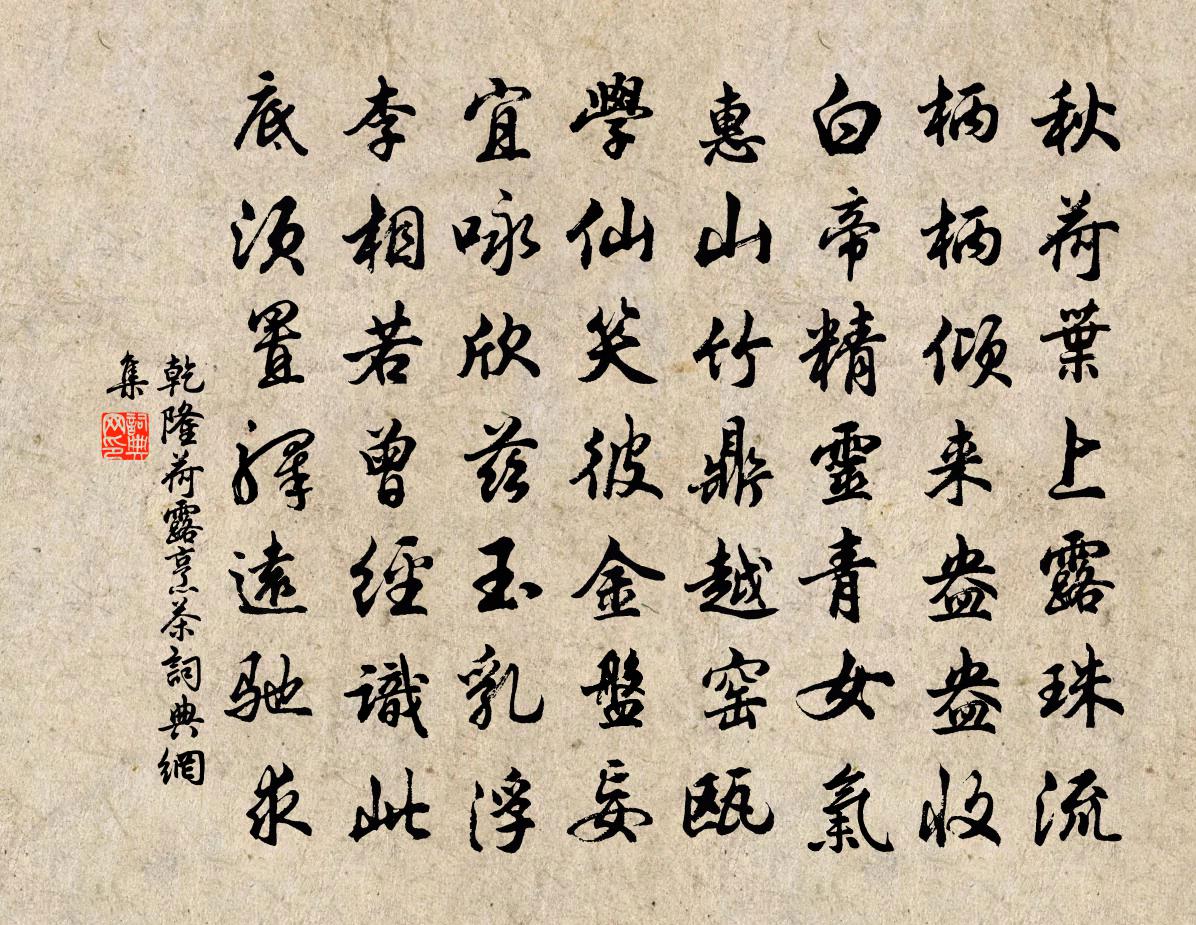 秋荷葉上露珠流
柄柄傾来盎盎收
白帝精靈青女氣
惠山竹鼎越窑甌
學仙笑彼金盤妄
宜咏欣兹玉乳浮
李相若曽經識此
底須置驛遠馳求
乾隆荷露烹茶詞典網
集
詞典网印